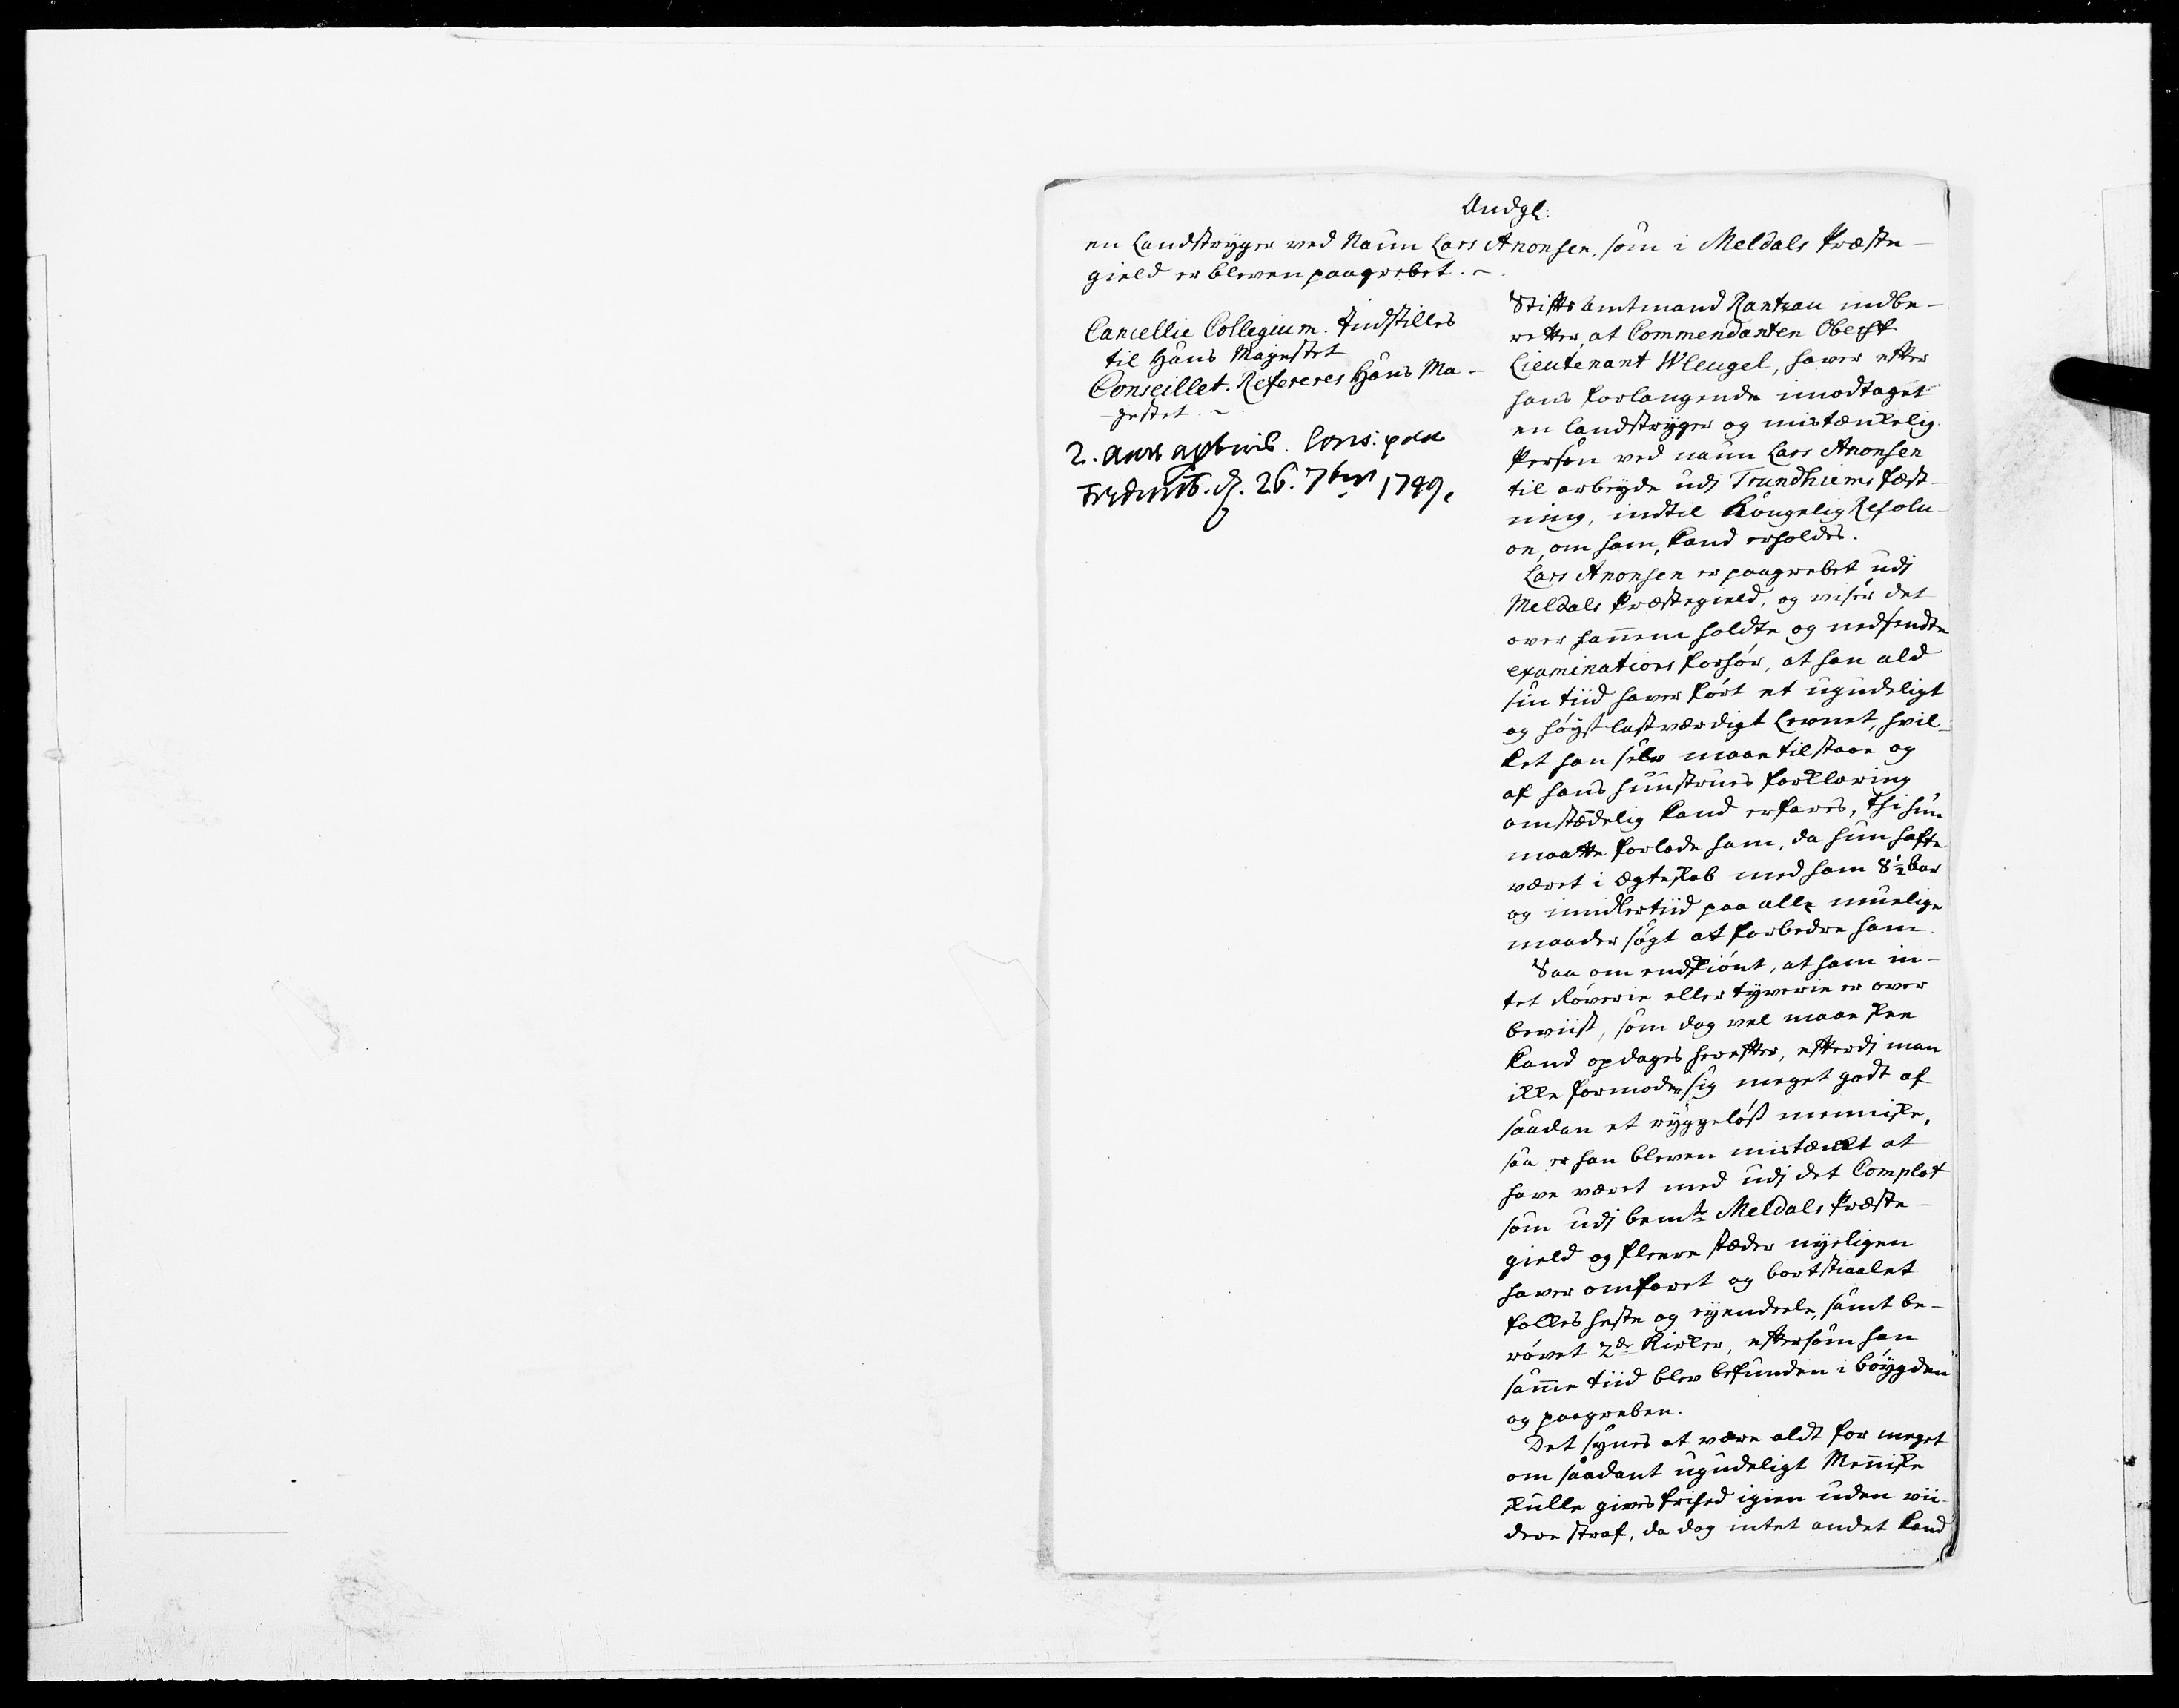 Andgl:
en Landstryger ved Naun Lars Anonsen, som i Meldals Præste-
gield er bleven paagrebet.
Cancellie Collegium. Indstilles
til Hans Mayestet
Conseillet. Refereres Hans Ma-
yestet
Fredensb. d. 26. 7br 1749.
Stiftsamtmand Rantzau indbe-
retter, at Commendanten Oberst
Lieutenant Wleugel, haver efter
hans forlangende imodtaget
en landstryger og mistænkelig
Person ved naun Lars Anonsen
til arbeyde udj Trundhiems Fæst-
ning, indtil Kongelig Resolu-
on, om ham, kand erholdes.
Lars Anonsen er paagrebet udj
Meldals Præstegield, og viser det
over hannem holdte og nedsendte
examinations forhør, at han ald
sin tiid haver ført et ugudeligt
og høyst lastværdigt Levnet, hvil-
ket han selv maae tilstaae og
af hans hustrues forklaring
omstædelig kand erfares, thi hun
maatte forlade ham, da hun hafte
været i Ægteskab med ham 8½ aar
og imidlertiid paa alle muelige
maader søgt at forbedre ham.
Saa om endskiønt, at ham in-
tet Røverie eller tyverie er over
beviist, som dog vel maaskee
kand opdages herefter, efterdj man
ikke formoder sig meget godt af
saadan et ryggeløst menniske,
saa er han bleven mistænkt at
have været med udj det Complot
som udj bemte Meldals Præste-
gield og fleere stæder nyeligen
haver omfaret og bortstiaalet
folkes heste og eyendeele, samt be-
røvet 2de Kirker, eftersom han
samme tiid blev befunden i bøygden
og paagreben.
Det synes at være aldt for meget
om saadant ugudeligt Menniske
skulle gives frihed igien uden vii-
dere straf, da dog intet andet kand